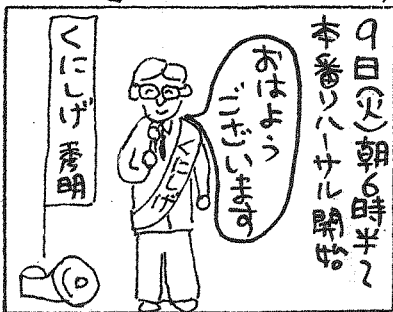 9日(火)朝6時半〜
本番リハーサル開始
おはよう
ございます
くにしげ
くにしげ 秀明